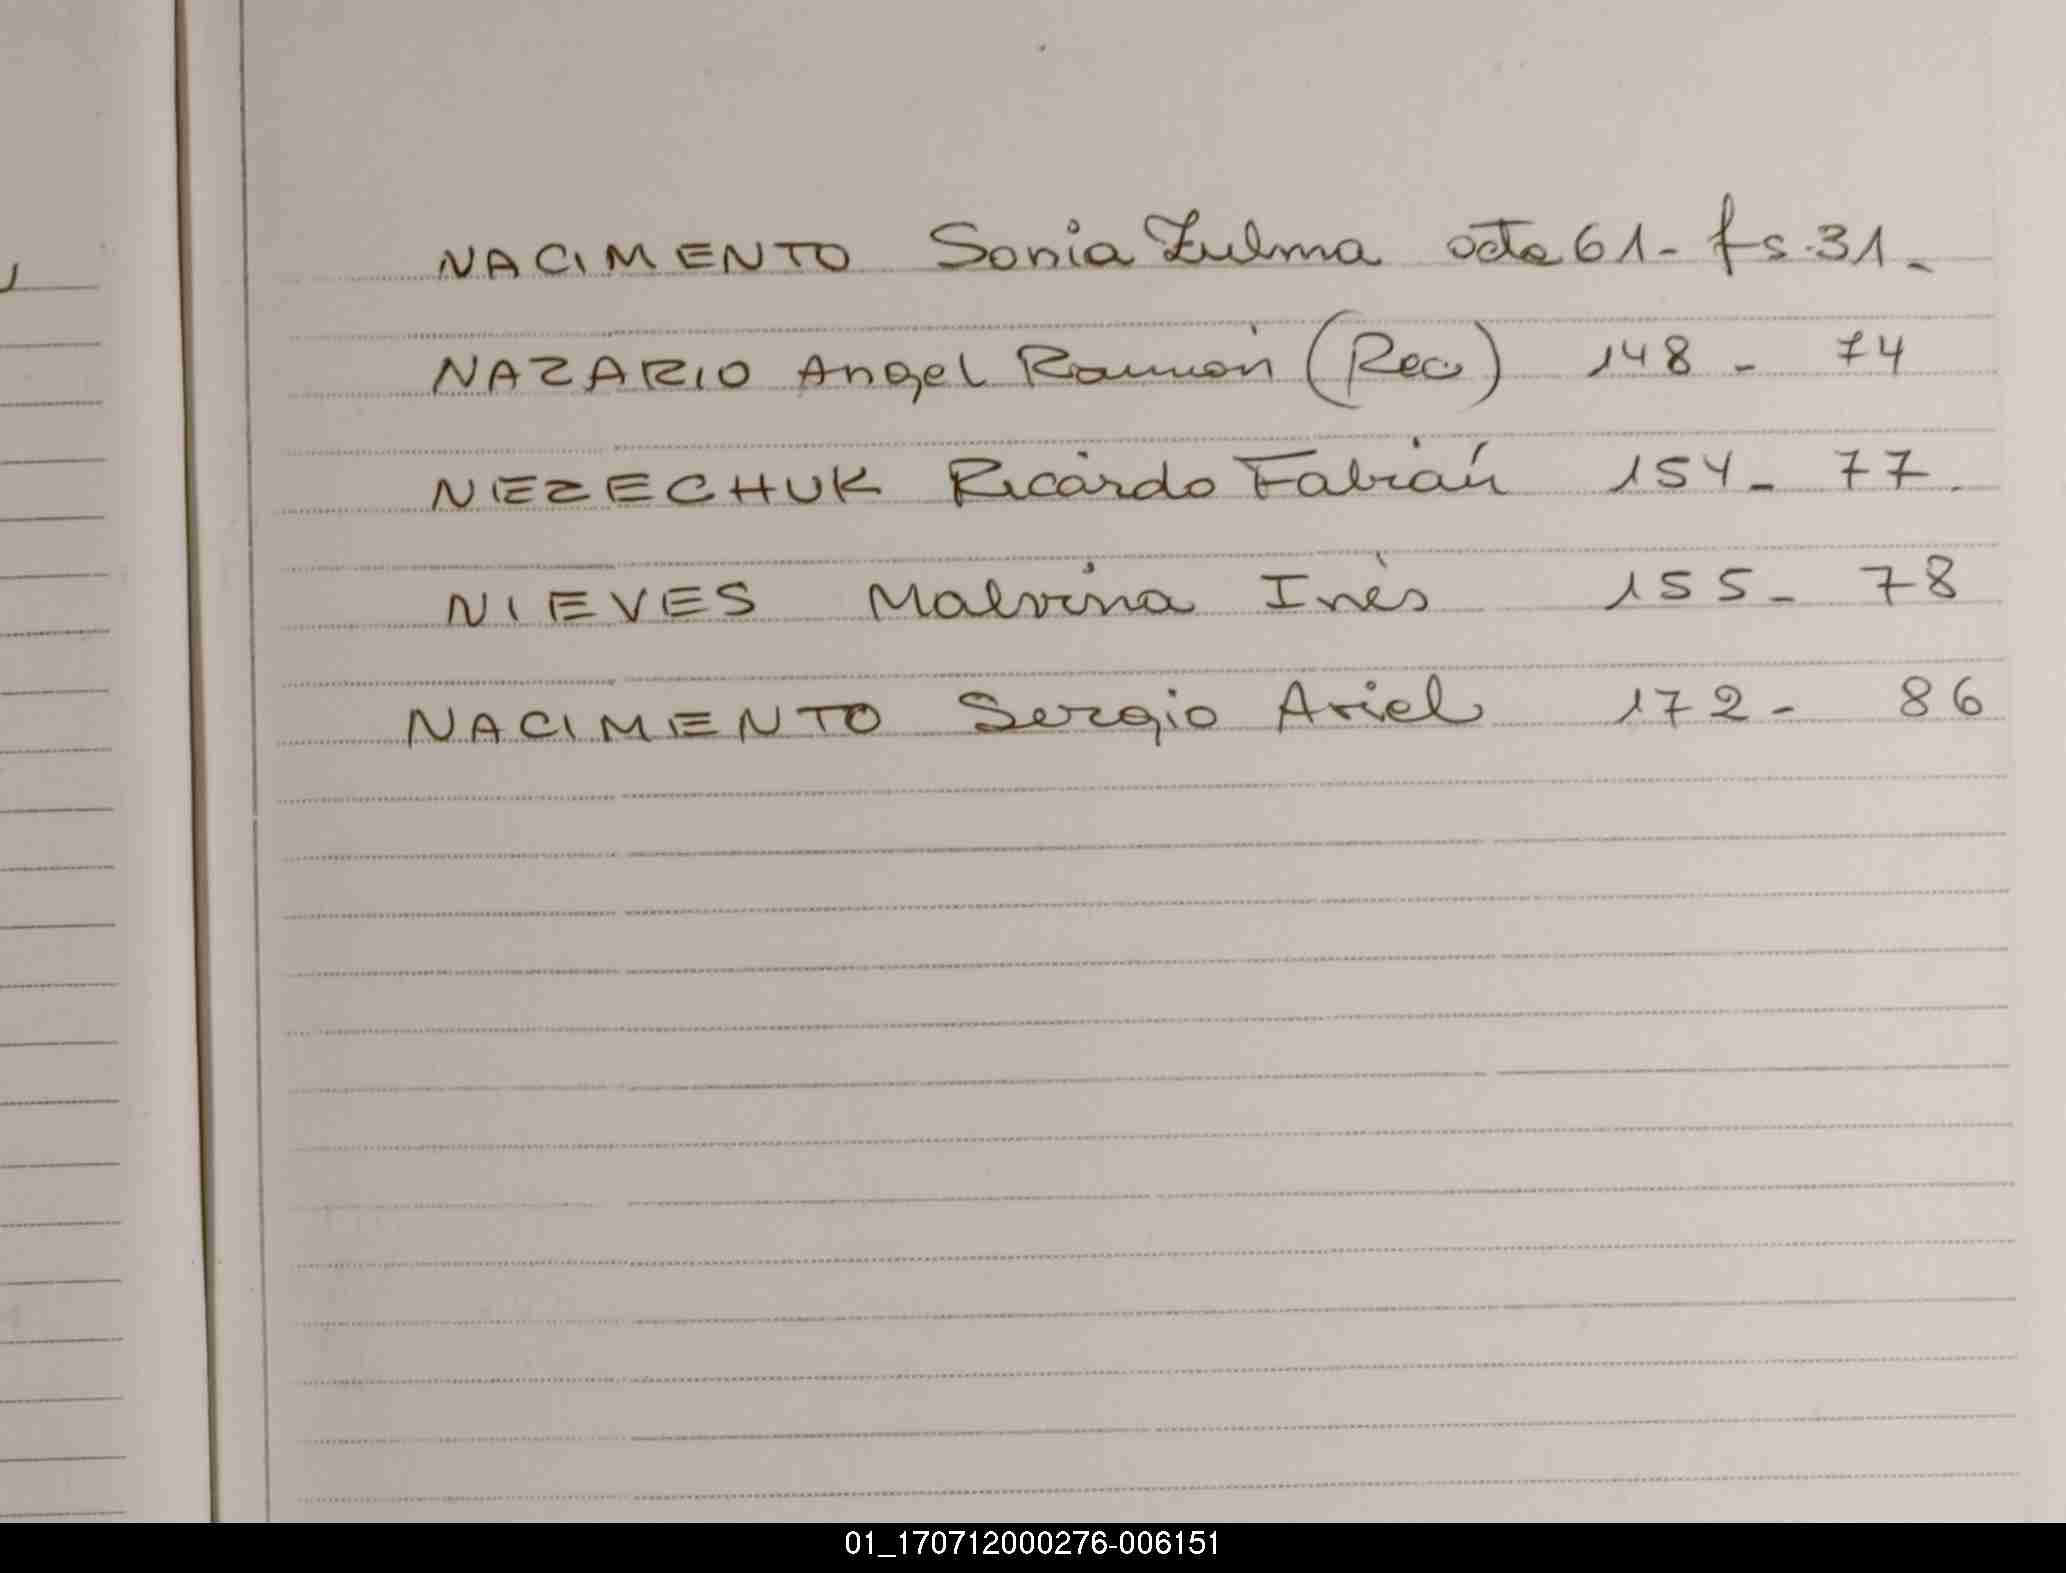 NACIMENTO Sonia Zulma acta 61 - fs. 31 -
NAZARIO Angel Ramón (Rec) 148 - 74
NEZECHUK Ricardo Fabián 154 - 77.
NIEVES Malvina Inés 155 - 78
NACIMENTO Sergio Ariel 172 - 86
01_170712000276-006151